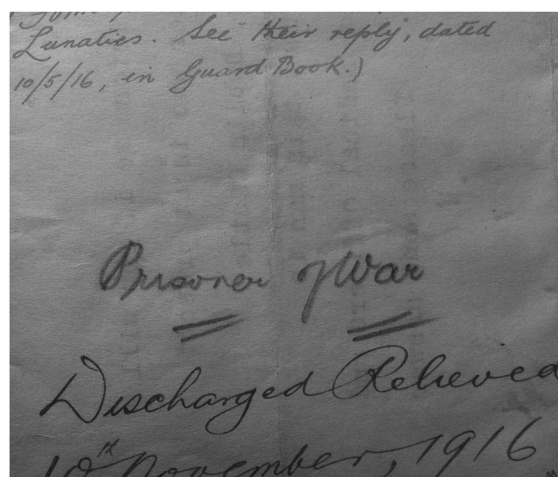 Lunatics. See their reply, dated
10/5/16, in Guard Book.)
Prisoner of War
Discharged Relieved
10th November, 1916